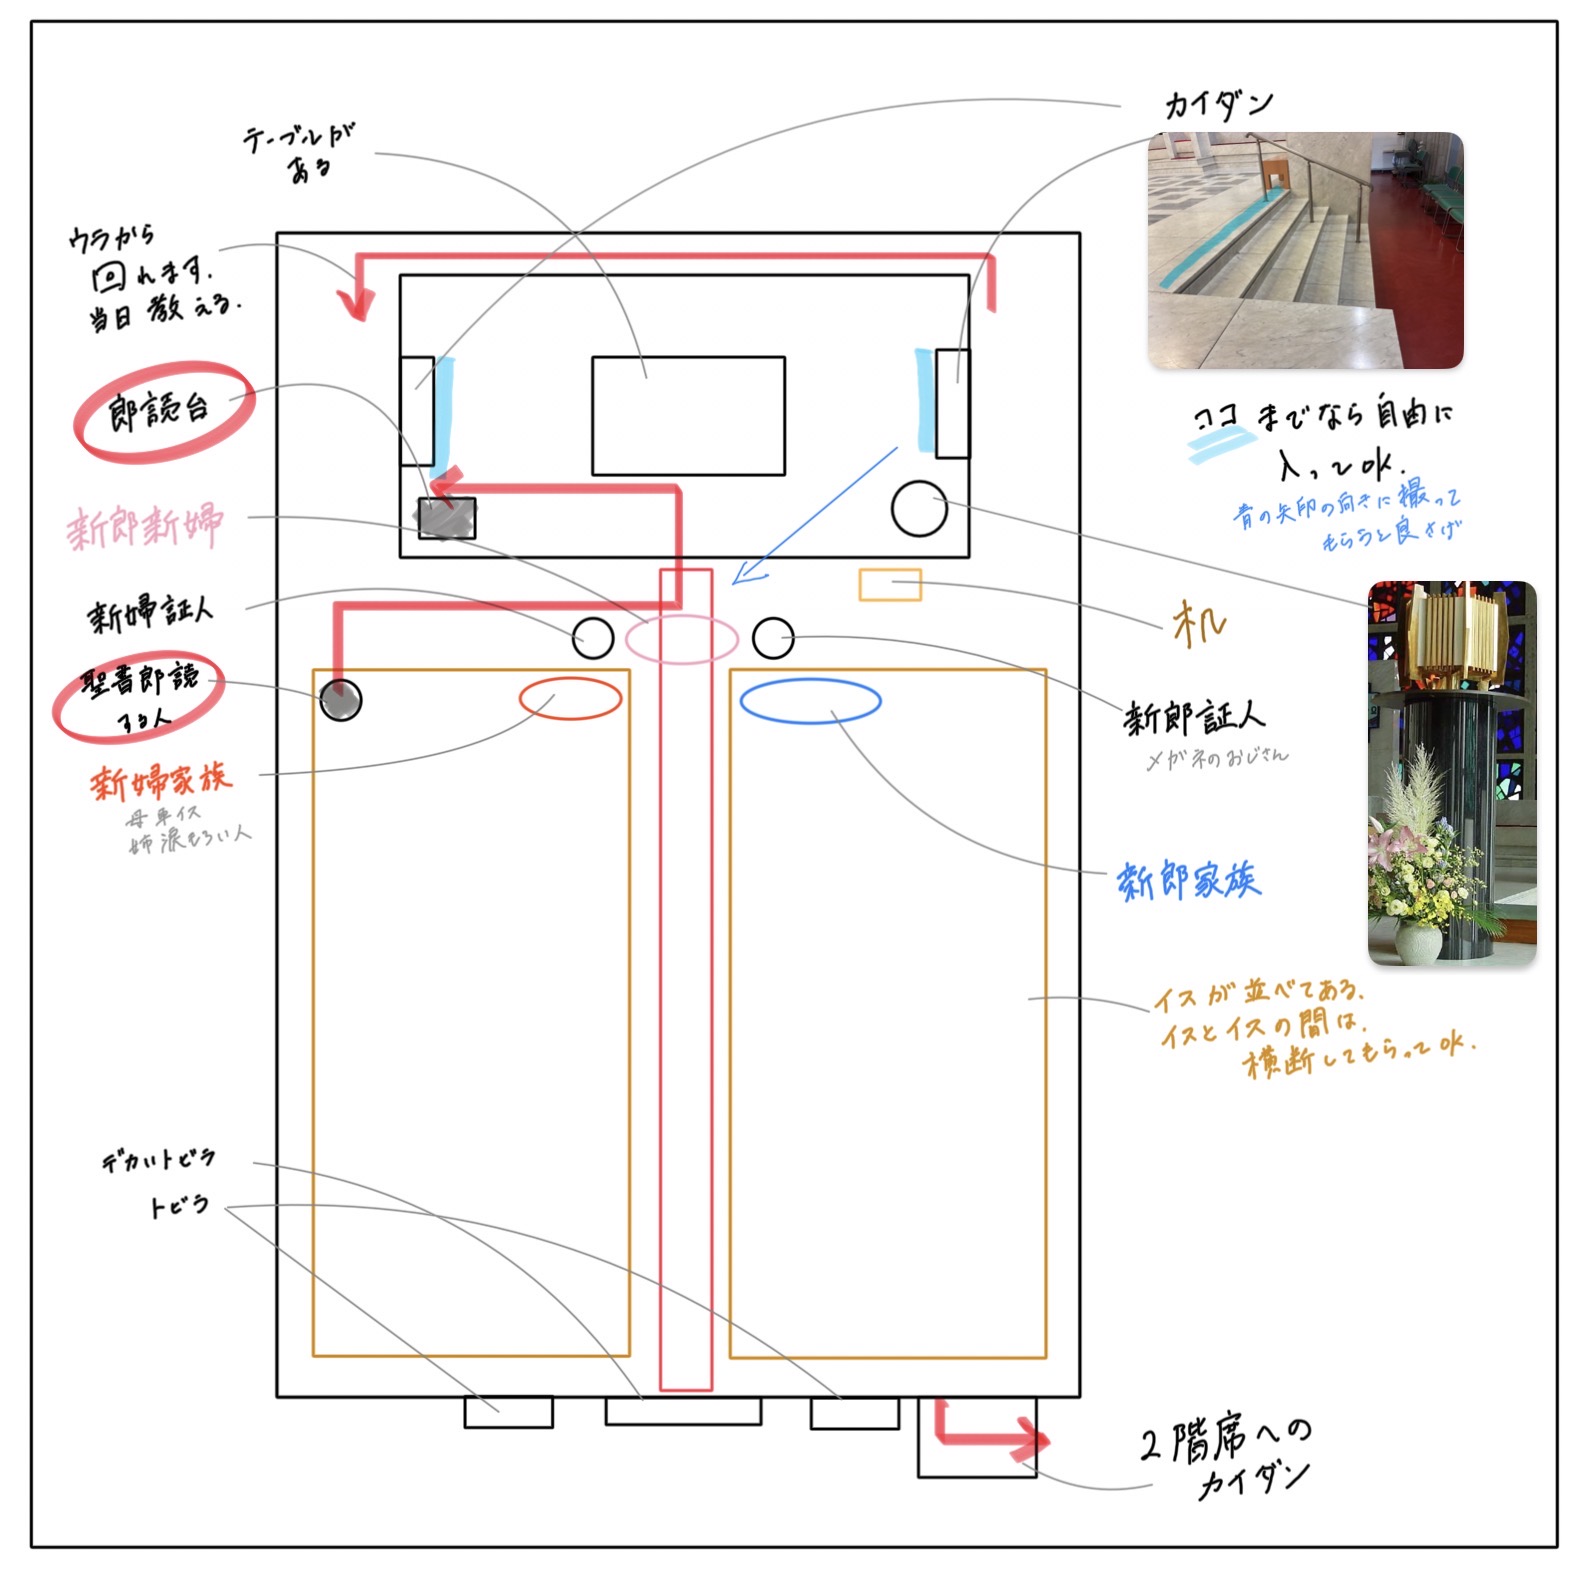 カイダン
テーブルが
ある
ウラから
回れます.
当日教える.
郎読台
新郎新婦
新婦証人
聖書郎読
する人
新婦家族
母車イス
姉涙もろい人
デカいトビラ
トビラ
ココまでなら自由に
入ってOK.
青の矢印の向きに撮って
もらうと良さげ
机
新郎証人
メガネのおじさん
新郎家族
イスが並べてある.
イスとイスの間は.
横断してもらってOK.
2階席への
カイダン